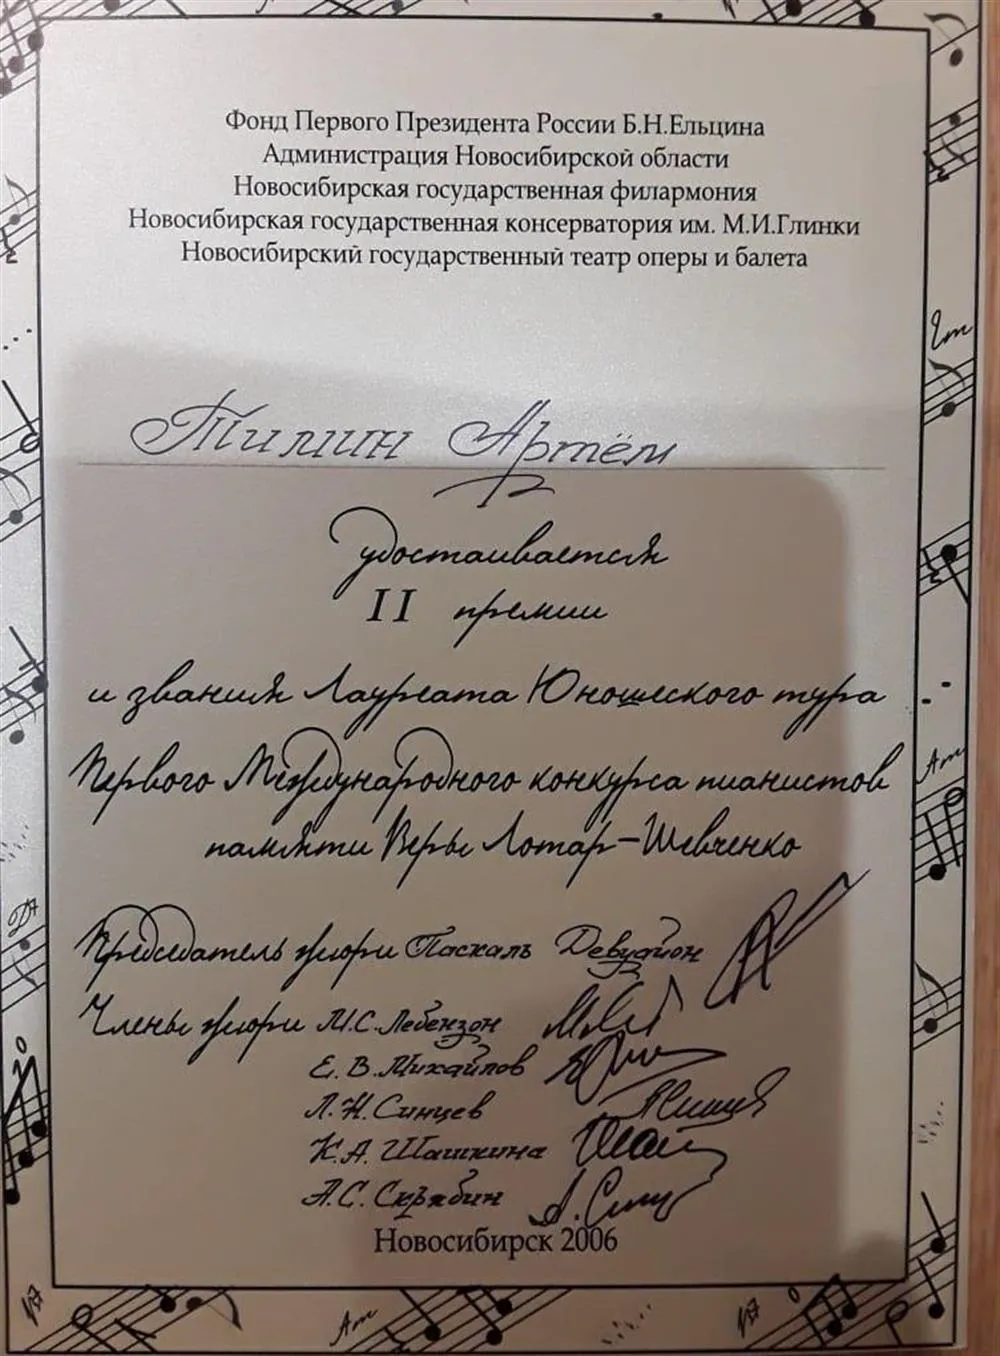 Фонд Первого Президента России Б.Н.Ельцина
Администрация Новосибирской области
Новосибирская государственная филармония
Новосибирская государственная консерватория им. М.И.Глинки
Новосибирский государственный театр оперы и балета
Тимин Артём
удостаивается
II премии
и звания Лауреата Юношеского тура
Первого Международного конкурса пианистов
памяти Веры Лотар-Шевченко
Председатель жюри Паскаль Девуайон
Члены жюри М.С.Лебензон
Е. В. Михайлов
Л.Н. Синцев
К.А. Шашкина
А.С. Скрябин
Новосибирск 2006